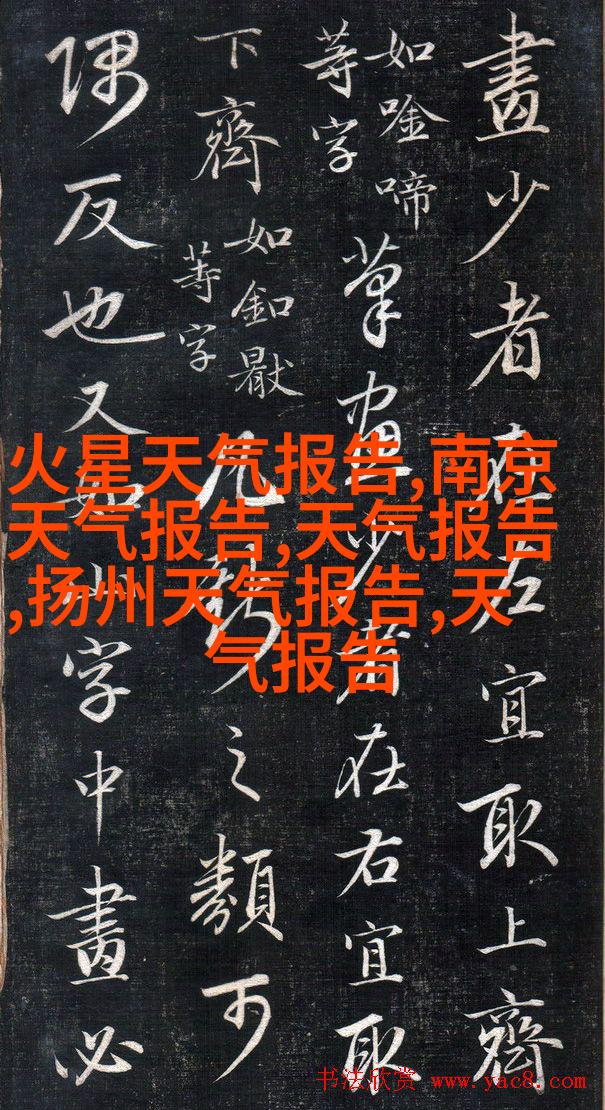 畫少者在左宜取上齊
如唫啼
等字
筆畫少者在右宜取
下齊
如釦
等字
之類可
隅反也又如山字中畫必
火星天气报告,南京
天气报告,天气报告
,扬州天气报告,天
气报告
书法欣赏 www.yac8.com